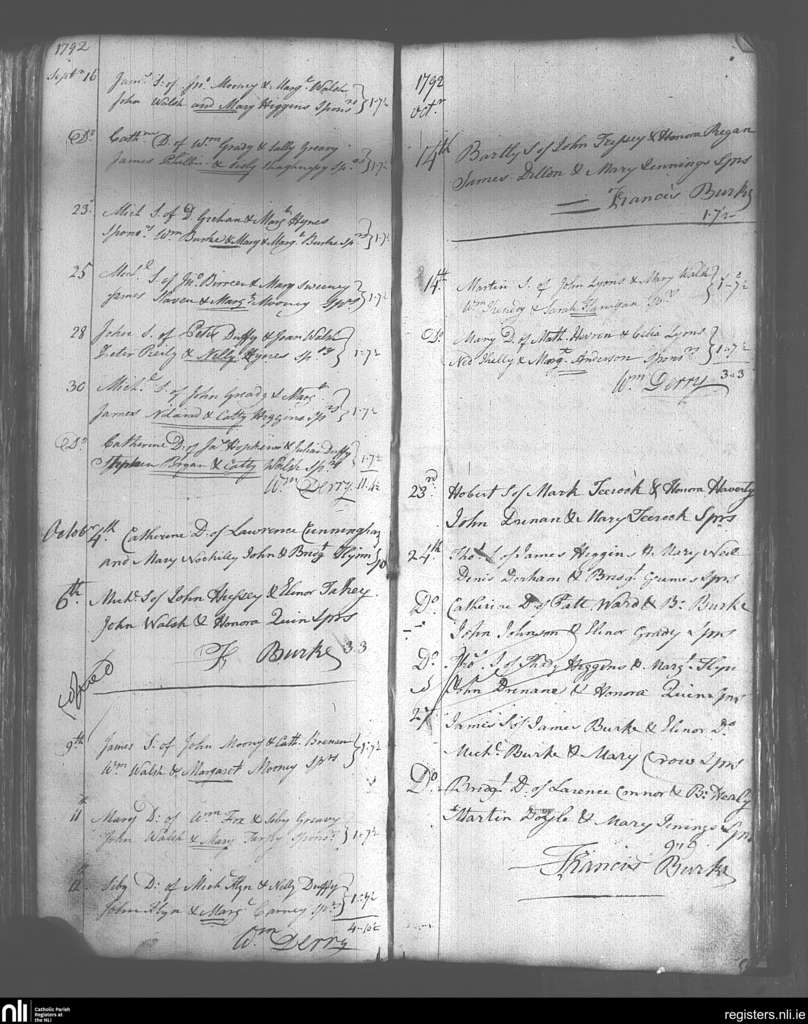 1792
Septr 16 Jams S. of Jno Mooney & Margt Walsh
John Walsh and Mary Higgins Sponrs 1-7½
Do Cathne D. of Wm Grady & Sally Greavy
James & Sprs 1-7½
23 Mich S. of D. Geehan & Margt Hynes
Sponrs Wm Burke & Mary & Margt Burke Sprs 1-7½
25 Michl S. of Jno & Mary Sweeney
James Slaven & Margt Mooney Sprs 1-7½
28 John S. of Peter Duffy & Joan Walsh
Peter Reily & Nelly Hynes Sprs 1-7½
30 Michl S. of John Gready & Margt
James Noland & Catty Higgins Sprs 1-7½
Do Catherine D. of Jas Hopkins & Julian Duffy
Stephen Bryan & Catty Walsh Sprs 1-7½
Wm Derry 11-4½
October 4th Catherine D. of Lawrence Cunningham
and Mary John & Bridgt Flynn Sp
6th Michl S of John Hussey & Elinor Fahey
John Walsh & Honora Quin Sprs
F Burke 3 3
Copied
9th James S. of John Moony & Cath. Brenan 1-7½
Wm Walsh & Margaret Mooney Sprs
11 Mary D: of Wm Fox & Siby Greavy
John Walsh & Mary Sponrs 1-7½
12 Siby D: of Mich Flyn & Nelly Duffy
John Flyn & Margt Carney Sprs 1-7½
4-10½
Wm Derry
1792
Octr
14th Bartly S of John & Honora Regan
James Dillon & Mary Jennings Sprs
Francis Burke
1-7½
14th Martin S. of John Lyons & Mary Walsh
Wm & Sarah Flanigan Sprs 1-7½
Do Mary D. of Math. & Celia Lyons
Ned Kelly & Margt Anderson Sponrs 1-7½
Wm Derry 3-3
23rd Hobert S of Mark Teerock & Honora Haverty
John Drenan & Mary Teerock Sprs
24th Thos S of James Higgins & Mary
Denis & Bridgt Sprs
Do Catherine D of Patt Ward & Bt Burke
John Johnson & Elinor Grady Sprs
Do Thos S of Thady Higgins & Margt Flyn
John Drenane & Honora Quin Sprs
27 James S of James Burke & Elinor Do
Michl Burke & Mary Crow Sprs
Do Bridgt D. of Larence Connor & Bt Healy
Martin Doyle & Mary Jenings Sprs
9-6
Francis Burke
nli
Catholic Parish
Registers at
the NLI
registers.nli.ie